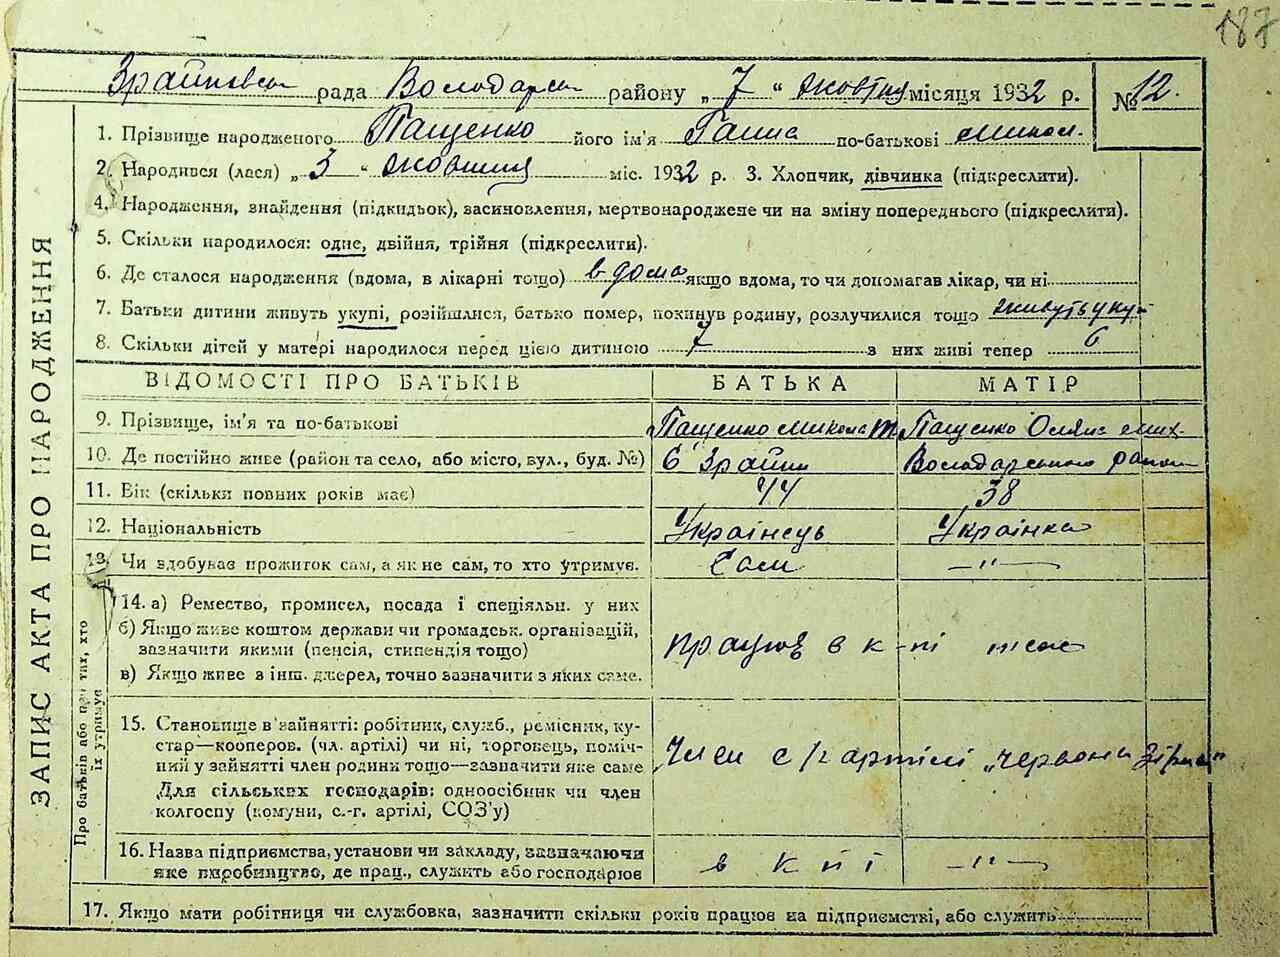 187
Зрайковська рада Володарськ району „7“ жовтня місяця 1932 р. № 12.
1. Прізвище народженого Пащенко його ім'я Ганна по-батькові Микол.
2. Народився (лася) „3“ жовтня міс. 1932 р. 3. Хлопчик, дівчинка (підкреслити).
4. Народження, знайдення (підкидьок), засиновлення, мертвонароджене чи на зміну попереднього (підкреслити).
5. Скільки народилося: одне, двійня, трійня (підкреслити).
6. Де сталося народження (вдома, в лікарні тощо) в дома якщо вдома, то чи допомагав лікар, чи ні
7. Батьки дитини живуть укупі, розійшлися, батько помер, покинув родину, розлучилися тощо живуть уку-
8. Скільки дітей у матері народилося перед цією дитиною 7 з них живі тепер 6
ВІДОМОСТІ ПРО БАТЬКІВ БАТЬКА МАТІР
9. Прізвище, ім'я та по-батькові Пащенко Микола Т Пащенко Оляна Мих-
10. Де постійно живе (район та село, або місто, вул., буд. №) с Зрайки Володарського район
11. Вік (скільки повних років має) 44 38
12. Національність Українець Українка
13. Чи здобував прожиток сам, а як не сам, то хто утримує. Сам —"—
14. а) Ремество, промисел, посада і спеціяльн. у них
б) Якщо живе коштом держави чи громадськ. організацій,
зазначити якими (пенсія, стипендія тощо) працює в к-пі
в) Якщо живе з інш. джерел, точно зазначити з яких саме.
15. Становище в зайнятті: робітник, служб., ремісник, ку-
стар—кооперов. (чл. артілі) чи ні, торговець, поміч-
ний у зайнятті член родини тощо—зазначити яке саме Член с/г артілі „Червона Зірка"
Для сільських господарів: одноосібник чи член
колгоспу (комуни, с.-г. артілі, СОЗ'у)
16. Назва підприємства, установи чи закладу, зазначаючи
яке виробництво, де прац., служить або господарює в кпі —"—
17. Якщо мати робітниця чи службовка, зазначити скільки років працює на підприємстві, або служить
ЗАПИС АКТА ПРО НАРОДЖЕННЯ
Про батьків або про тих, хто
їх утримує